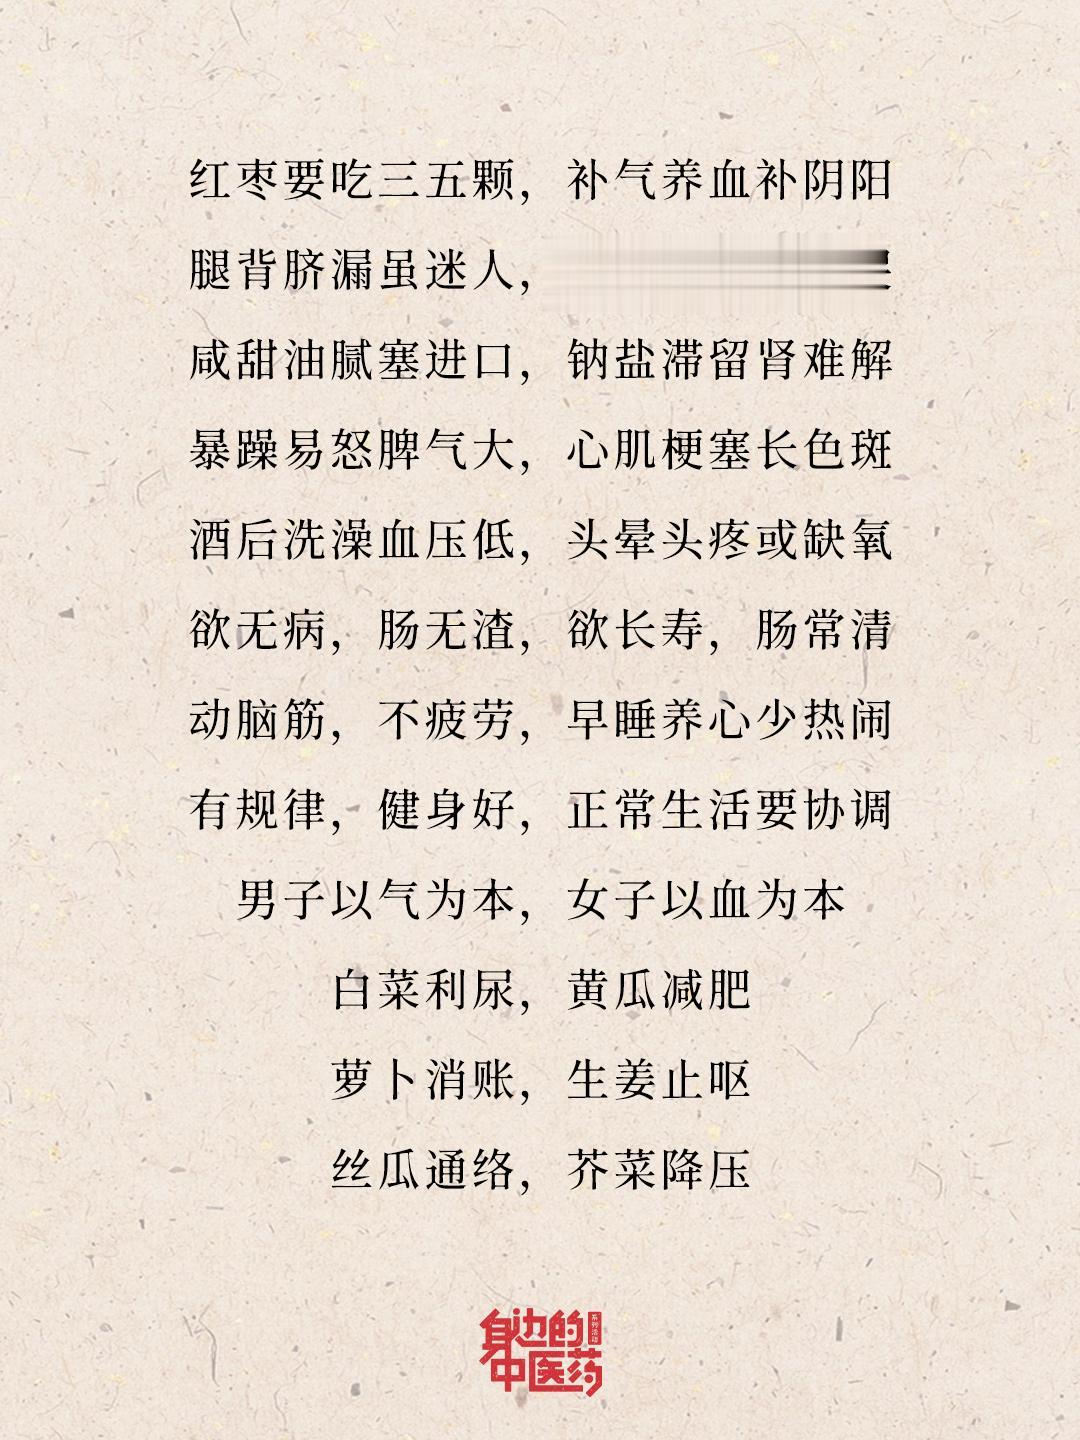 红枣要吃三五颗，补气养血补阴阳
腿背脐漏虽迷人，
咸甜油腻塞进口，钠盐滞留肾难解
暴躁易怒脾气大，心肌梗塞长色斑
酒后洗澡血压低，头晕头疼或缺氧
欲无病，肠无渣，欲长寿，肠常清
动脑筋，不疲劳，早睡养心少热闹
有规律，健身好，正常生活要协调
男子以气为本，女子以血为本
白菜利尿，黄瓜减肥
萝卜消账，生姜止呕
丝瓜通络，芥菜降压
身边的
系列活动
中医药